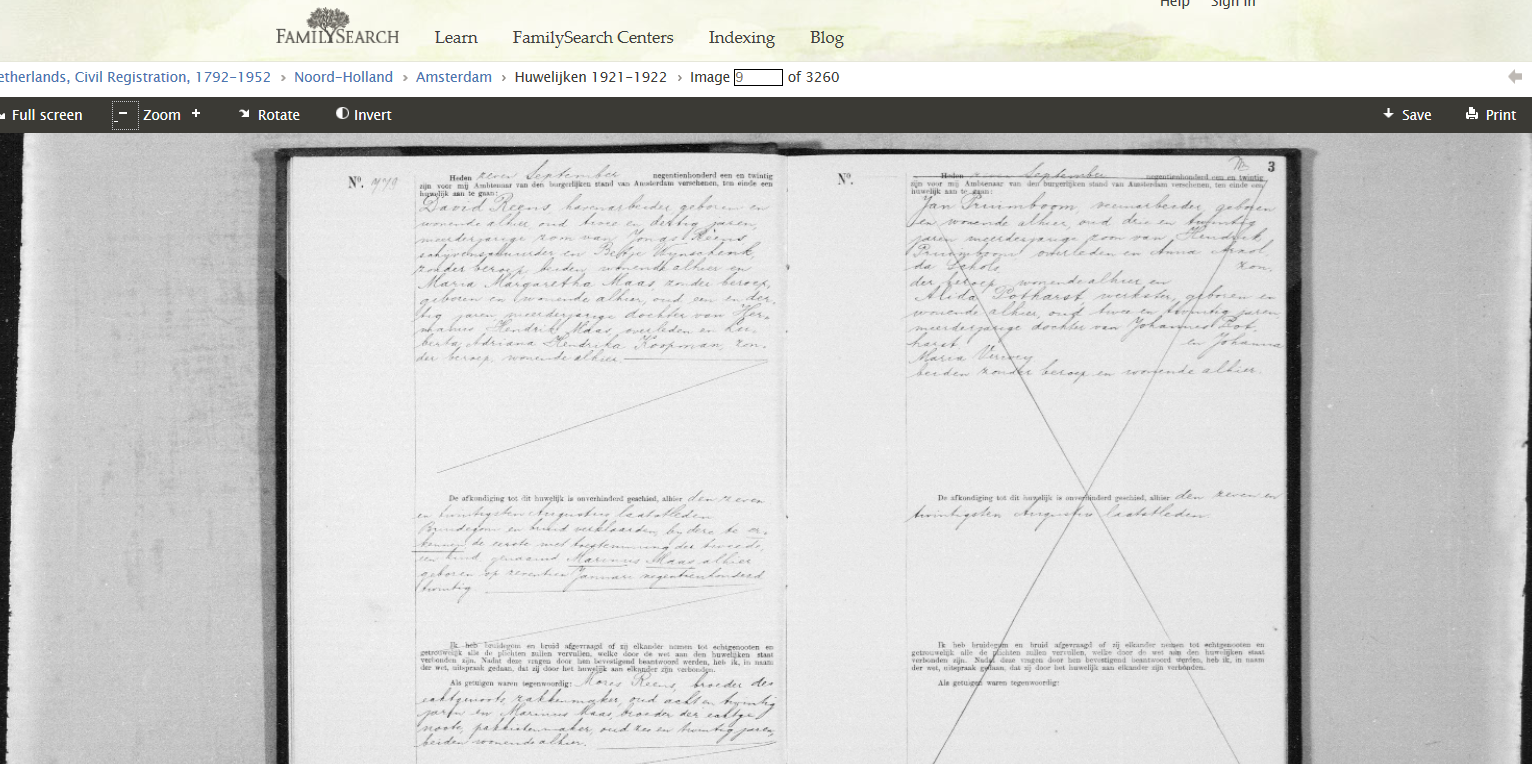 Help Sign in
FAMILYSEARCH Learn FamilySearch Centers Indexing Blog
etherlands, Civil Registration, 1792-1952 › Noord-Holland › Amsterdam › Huwelijken 1921-1922 › Image 9 of 3260
Full screen − Zoom + Rotate Invert Save Print
Nº.
Heden zeven September negentienhonderd een en twintig
zijn voor mij Ambtenaar van den burgerlijken stand van Amsterdam verschenen, ten einde een
huwelijk aan te gaan:
David Reens, havenarbeider geboren en
wonende alhier oud twee en dertig jaren,
meerderjarige zoon van Jonas Reens
en
zonder beroep beiden wonende alhier en
Maria Margaretha Maas, zonder beroep,
geboren en wonende alhier, oud een en der-
tig jaren meerderjarige dochter van Her-
manus Hendrik Maas, overleden en
Adriana Hendrika Koopman, zon-
der beroep, wonende alhier.
De afkondiging tot dit huwelijk is onverhinderd geschied, alhier den zeven
en twintigsten Augustus laatstleden
Bruidegom en bruid verklaarden bij deze te er-
kennen de eerste met toestemming der tweede,
een kind genaamd Marinus Maas alhier
geboren op zeventien Januari negentienhonderd
twintig
Ik heb bruidegom en bruid afgevraagd of zij elkander nemen tot echtgenooten en
getrouwelijk alle de plichten zullen vervullen, welke door de wet aan den huwelijken staat
verbonden zijn. Nadat deze vragen door hen bevestigend beantwoord werden, heb ik, in naam
der wet, uitspraak gedaan, dat zij door het huwelijk aan elkander zijn verbonden.
Als getuigen waren tegenwoordig: Mozes Reens, broeder des
echtgenoots, zakkenmaker, oud acht en twintig
jaren en Marinus Maas, broeder der echtge-
noote, oud zes en twintig jaren,
beiden wonende alhier.
3
Nº.
Heden zeven September negentienhonderd een en twintig
zijn voor mij Ambtenaar van den burgerlijken stand van Amsterdam verschenen, ten einde een
huwelijk aan te gaan:
Jan Pruimboom, veemarbeider, geboren
en wonende alhier, oud drie en twintig
jaren meerderjarige zoon van Hendrik
Pruimboom overleden en Anna
Schols, zon-
der beroep, wonende alhier en
Alida Potharst werkster, geboren en
wonende alhier, oud twee en twintig jaren,
meerderjarige dochter van Johannes Pot-
harst en Johanna
Maria
beiden zonder beroep en wonende alhier.
De afkondiging tot dit huwelijk is onverhinderd geschied, alhier den zeven en
twintigsten Augustus laatstleden
Ik heb bruidegom en bruid afgevraagd of zij elkander nemen tot echtgenooten en
getrouwelijk alle de plichten zullen vervullen, welke door de wet aan den huwelijken staat
verbonden zijn. Nadat deze vragen door hen bevestigend beantwoord werden, heb ik, in naam
der wet, uitspraak gedaan, dat zij door het huwelijk aan elkander zijn verbonden.
Als getuigen waren tegenwoordig: